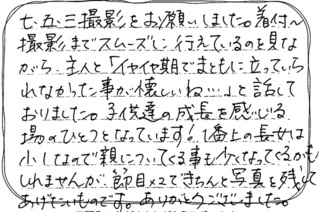 七五三撮影をお願いしました。着付〜
撮影までスムーズに行えているのを見な
がら、主人と「イヤイヤ期でまともに立っていら
れなかった事が懐しいね…」と話して
おりました。子供達の成長を感じる
場のひとつとなっています!1番上の長女は
小1なので親についてくる事も少なくなってくるかも
しれませんが、節目×2できちんと写真を残して
あげたいものです。ありがとうございました。